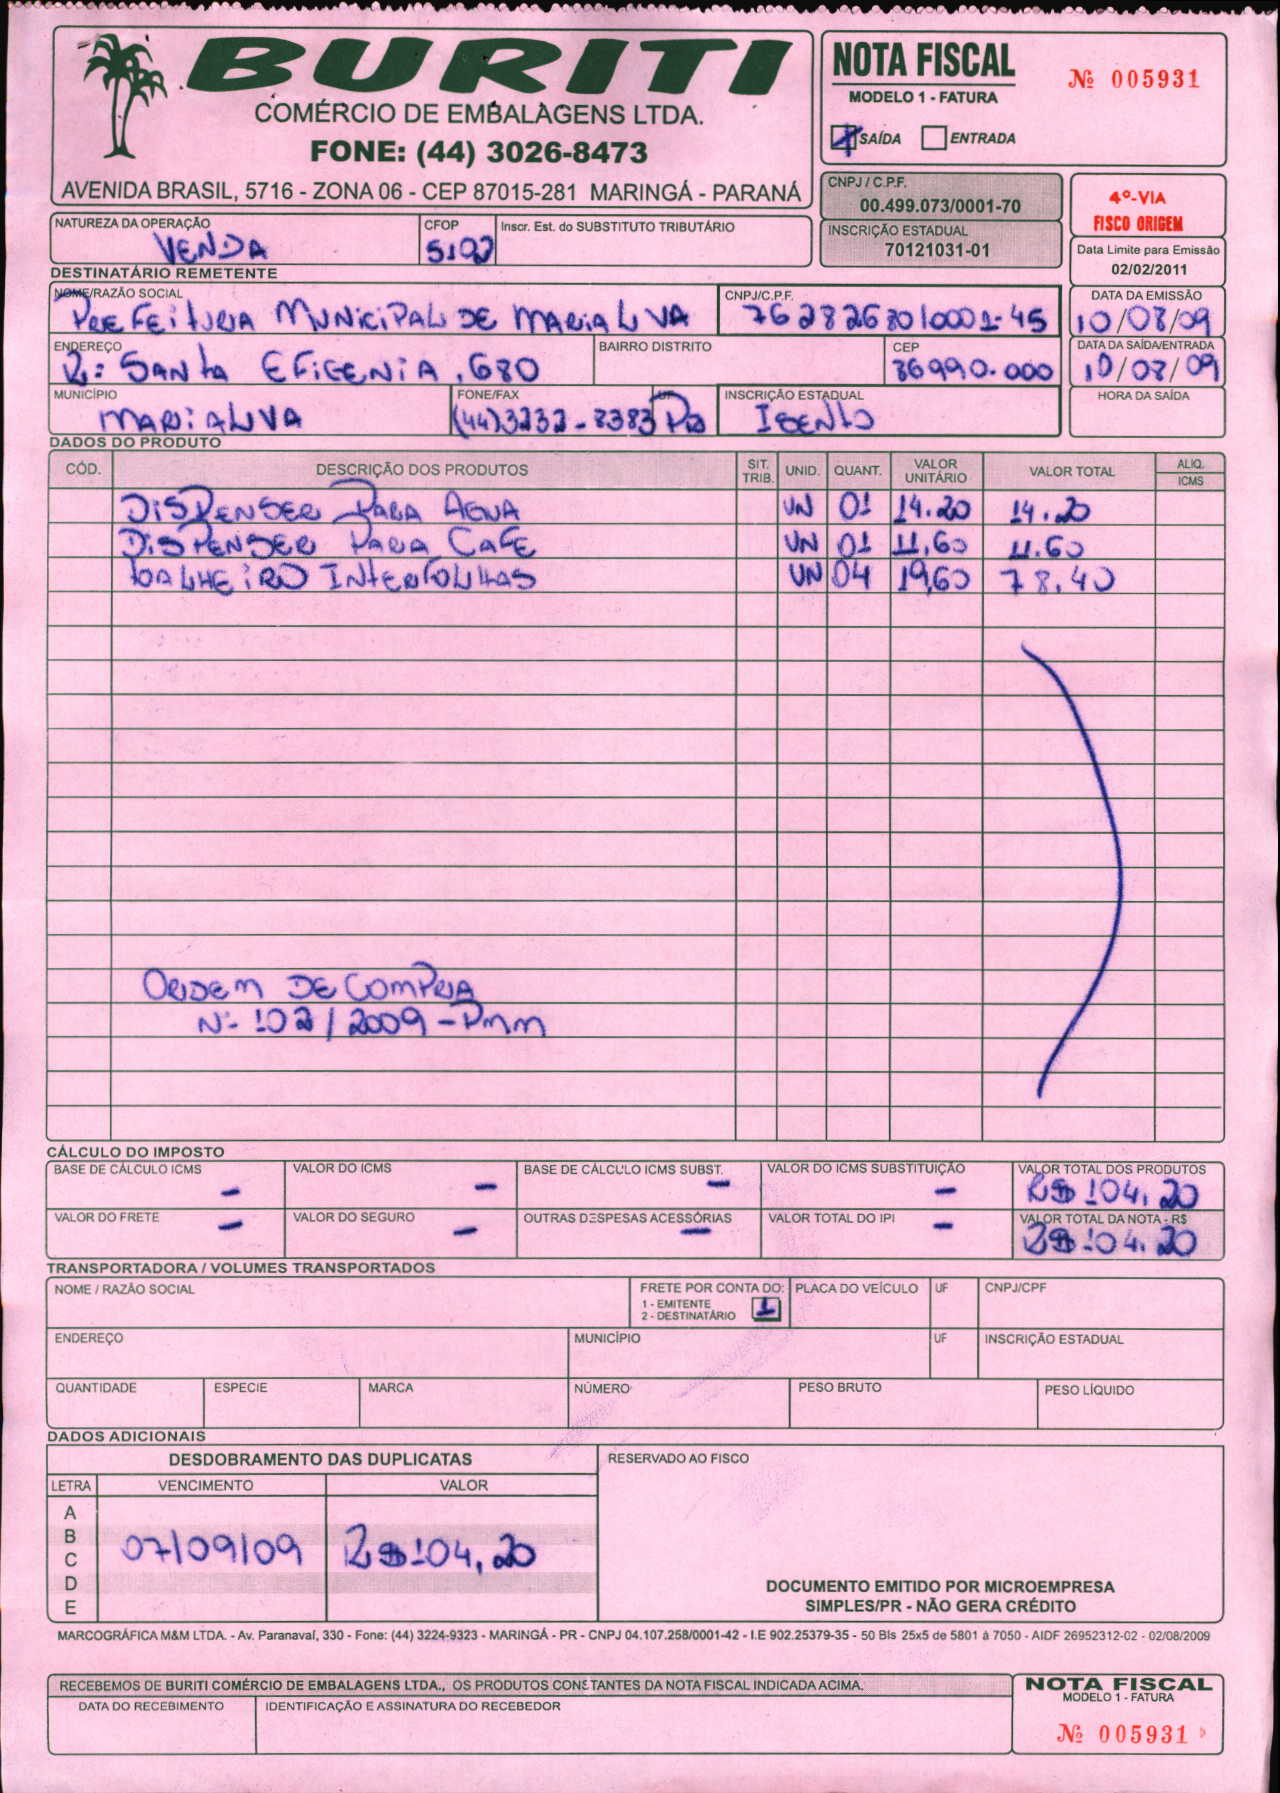 BURITI
COMÉRCIO DE EMBALAGENS LTDA.
FONE: (44) 3026-8473
AVENIDA BRASIL, 5716 - ZONA 06 - CEP 87015-281 MARINGÁ - PARANÁ
NOTA FISCAL
Nº 005931
MODELO 1 - FATURA
SAÍDA ENTRADA
CNPJ / C.P.F.
00.499.073/0001-70
INSCRIÇÃO ESTADUAL
70121031-01
4º-VIA
FISCO ORIGEM
Data Limite para Emissão
02/02/2011
NATUREZA DA OPERAÇÃO CFOP Inscr. Est. do SUBSTITUTO TRIBUTÁRIO
VENDA 5.102
DESTINATÁRIO REMETENTE
NOME/RAZÃO SOCIAL CNPJ/C.P.F. DATA DA EMISSÃO
PREFEITURA MUNICIPAL DE MARIALVA 76282680/0001-45 10/08/09
ENDEREÇO BAIRRO DISTRITO CEP DATA DA SAÍDA/ENTRADA
R: SANTA EFIGENIA, 680 86990.000 10/08/09
MUNICÍPIO FONE/FAX UF INSCRIÇÃO ESTADUAL HORA DA SAÍDA
MARIALVA (44)3232-8383 PR ISENTO
DADOS DO PRODUTO
CÓD. DESCRIÇÃO DOS PRODUTOS SIT. TRIB. UNID. QUANT. VALOR UNITÁRIO VALOR TOTAL ALIQ. ICMS
DISPENSER PARA AGUA UN 01 14.20 14.20
DISPENSER PARA CAFE UN 01 11,60 11.60
TOALHEIRO INTERFOLHAS UN 04 19,60 78.40
ORDEM DE COMPRA
Nº 102/2009-PMM
CÁLCULO DO IMPOSTO
BASE DE CÁLCULO ICMS VALOR DO ICMS BASE DE CÁLCULO ICMS SUBST. VALOR DO ICMS SUBSTITUIÇÃO VALOR TOTAL DOS PRODUTOS
- - - - R$ 104,20
VALOR DO FRETE VALOR DO SEGURO OUTRAS DESPESAS ACESSÓRIAS VALOR TOTAL DO IPI VALOR TOTAL DA NOTA - R$
- - - - R$ 104,20
TRANSPORTADORA / VOLUMES TRANSPORTADOS
NOME / RAZÃO SOCIAL FRETE POR CONTA DO: PLACA DO VEÍCULO UF CNPJ/CPF
1 - EMITENTE
2 - DESTINATÁRIO 1
ENDEREÇO MUNICÍPIO UF INSCRIÇÃO ESTADUAL
QUANTIDADE ESPECIE MARCA NÚMERO PESO BRUTO PESO LÍQUIDO
DADOS ADICIONAIS
DESDOBRAMENTO DAS DUPLICATAS
LETRA VENCIMENTO VALOR
A
B
C
D
E
07/09/09 R$ 104,20
RESERVADO AO FISCO
DOCUMENTO EMITIDO POR MICROEMPRESA
SIMPLES/PR - NÃO GERA CRÉDITO
MARCOGRÁFICA M&M LTDA. - Av. Paranavaí, 330 - Fone: (44) 3224-9323 - MARINGÁ - PR - CNPJ 04.107.258/0001-42 - I.E 902.25379-35 - 50 Bls 25x5 de 5801 à 7050 - AIDF 26952312-02 - 02/08/2009
RECEBEMOS DE BURITI COMÉRCIO DE EMBALAGENS LTDA., OS PRODUTOS CONSTANTES DA NOTA FISCAL INDICADA ACIMA.
DATA DO RECEBIMENTO IDENTIFICAÇÃO E ASSINATURA DO RECEBEDOR
NOTA FISCAL
MODELO 1 - FATURA
Nº 005931